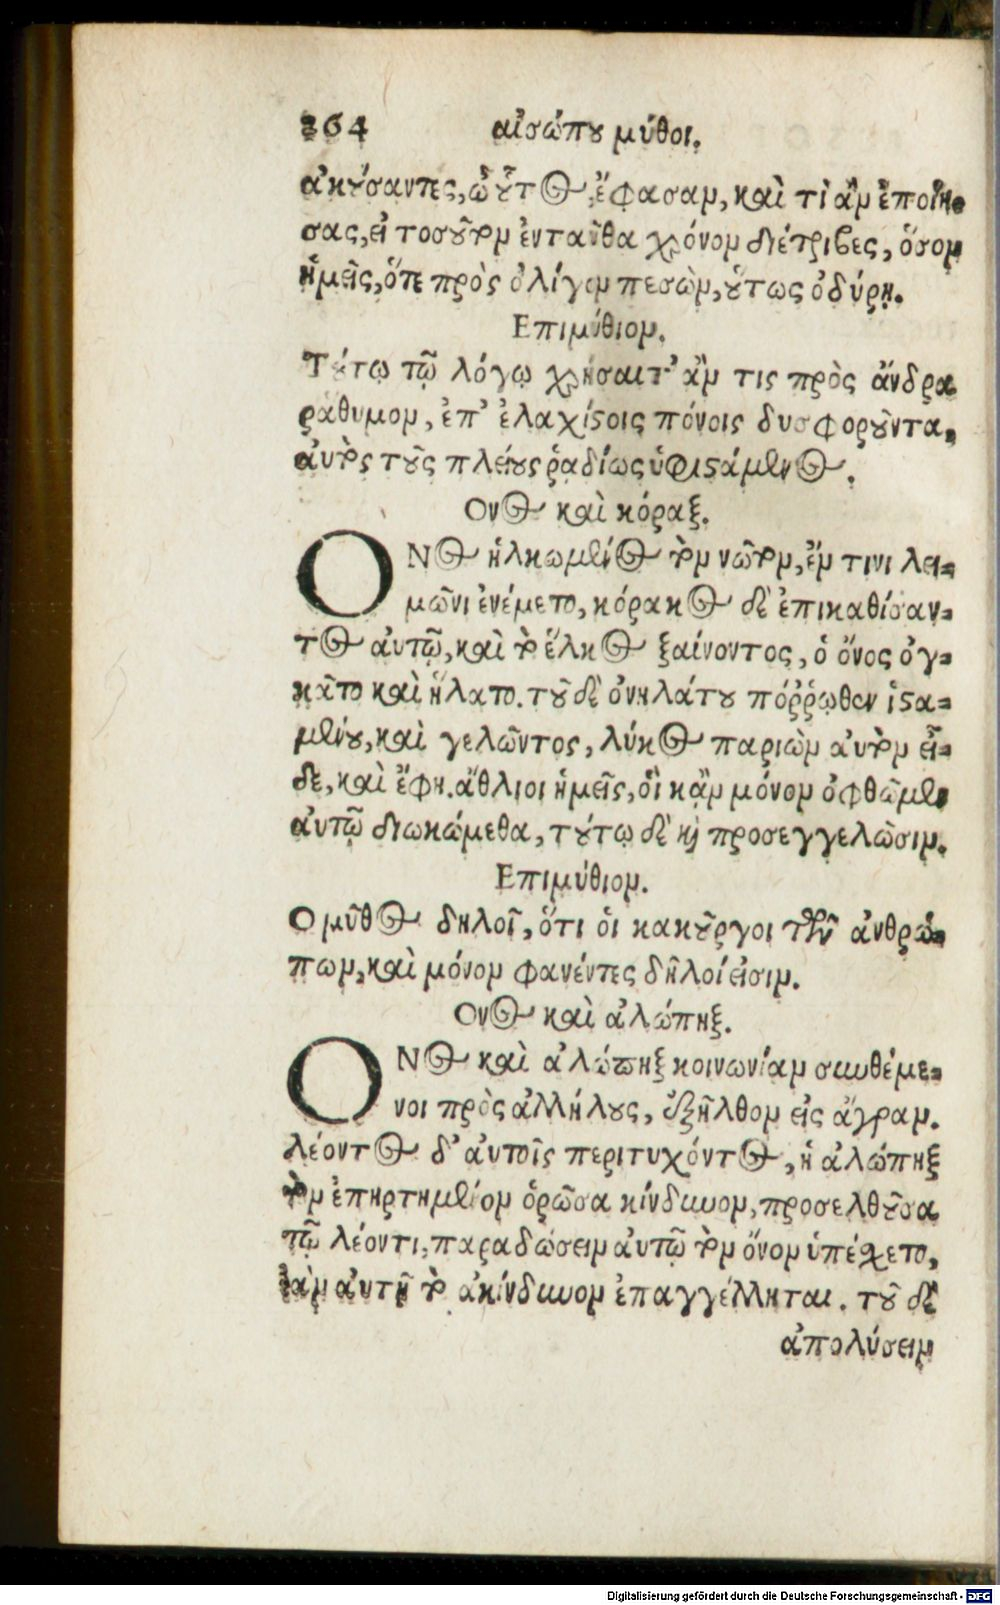 364 αἰσώπου μύθοι.
ἀκούσαντες, ὦ οὗτος, ἔφασαν, καὶ τί ἂν ἐποίη-
σας, εἰ τοσοῦτον ἐνταῦθα χρόνον διέτριβες, ὅσον
ἡμεῖς, ὅτε πρὸς ὀλίγον πεσὼν, οὕτως ὀδύρῃ.
Επιμύθιον.
Τούτῳ τῷ λόγῳ χρήσαιτ' ἂν τις πρὸς ἄνδρα
ῥάθυμον, ἐπ' ἐλαχίστοις πόνοις δυσφοροῦντα,
αὐτὸς τοὺς πλείους ῥαδίως ὑφιστάμενος.
Ονος καὶ κόραξ.
ΟΝος ἡλκωμένος τὸν νῶτον, ἔν τινι λει-
μῶνι ἐνέμετο, κόρακος δὲ ἐπικαθίσαν-
τος αὐτῷ, καὶ τὸ ἕλκος ξαίνοντος, ὁ ὄνος ὀγ-
κᾶτο καὶ ἥλατο. τοῦ δὲ ὀνηλάτου πόῤῥωθεν ἱστα-
μένου, καὶ γελῶντος, λύκος παριὼν αὐτὸν εἶ-
δε, καὶ ἔφη. ἄθλιοι ἡμεῖς, οἳ κἂν μόνον ὀφθῶμεν
αὐτῷ διωκώμεθα, τούτῳ δὲ καὶ προσεγγελῶσιν.
Επιμύθιον.
Ο μῦθος δηλοῖ, ὅτι οἱ κακοῦργοι τῶν ἀνθρώ-
πων, καὶ μόνον φανέντες δῆλοί εἰσιν.
Ονος καὶ ἀλώπηξ.
ΟΝος καὶ ἀλώπηξ κοινωνίαν συνθέμε-
νοι πρὸς ἀλλήλους, ἐξῆλθον εἰς ἄγραν.
λέοντος δ' αὐτοῖς περιτυχόντος, ἡ ἀλώπηξ
τὸν ἐπηρτημένον ὁρῶσα κίνδυνον, προσελθοῦσα
τῷ λέοντι, παραδώσειν αὐτῷ τὸν ὄνον ὑπέσχετο,
ἐὰν αὐτῇ τὸ ἀκίνδυνον ἐπαγγέλληται. τοῦ δὲ
ἀπολύσειν
Digitalisierung gefördert durch die Deutsche Forschungsgemeinschaft - DFG